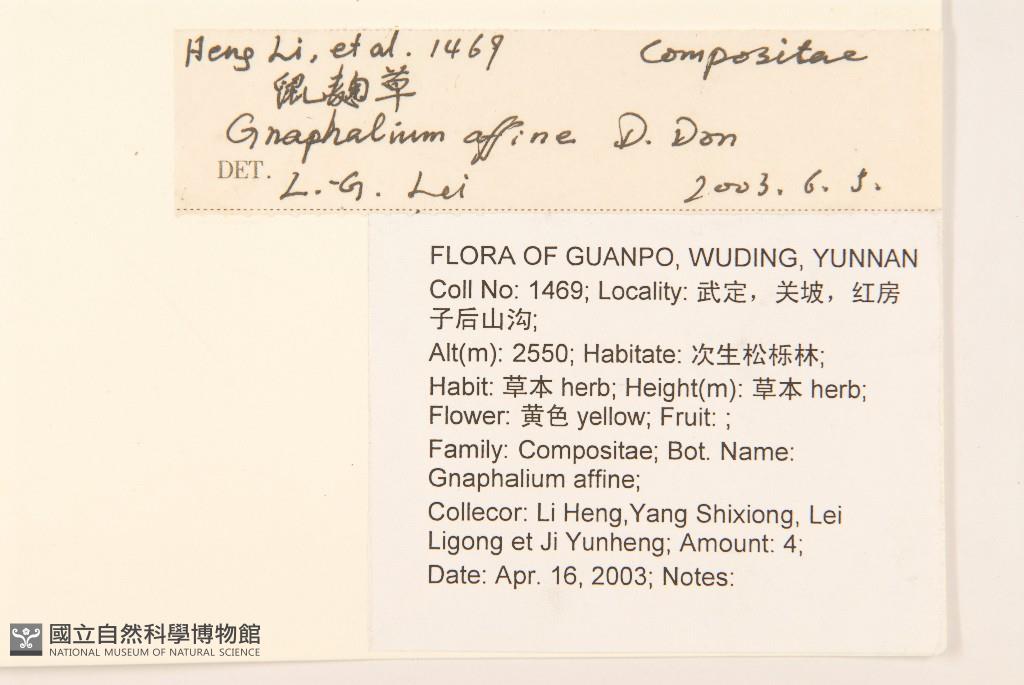 Heng Li, et al. 1469 Compositae
鼠麹草
Gnaphalium affine D. Don
DET. L.-G. Lei 2003. 6. 5.
FLORA OF GUANPO, WUDING, YUNNAN
Coll No: 1469; Locality: 武定，关坡，红房
子后山沟;
Alt(m): 2550; Habitate: 次生松栎林;
Habit: 草本 herb; Height(m): 草本 herb;
Flower: 黄色 yellow; Fruit: ;
Family: Compositae; Bot. Name:
Gnaphalium affine;
Collecor: Li Heng,Yang Shixiong, Lei
Ligong et Ji Yunheng; Amount: 4;
Date: Apr. 16, 2003; Notes:
國立自然科學博物館
NATIONAL MUSEUM OF NATURAL SCIENCE